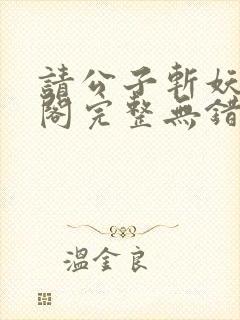 請公子斬妖
閣完整無錯
溫金良